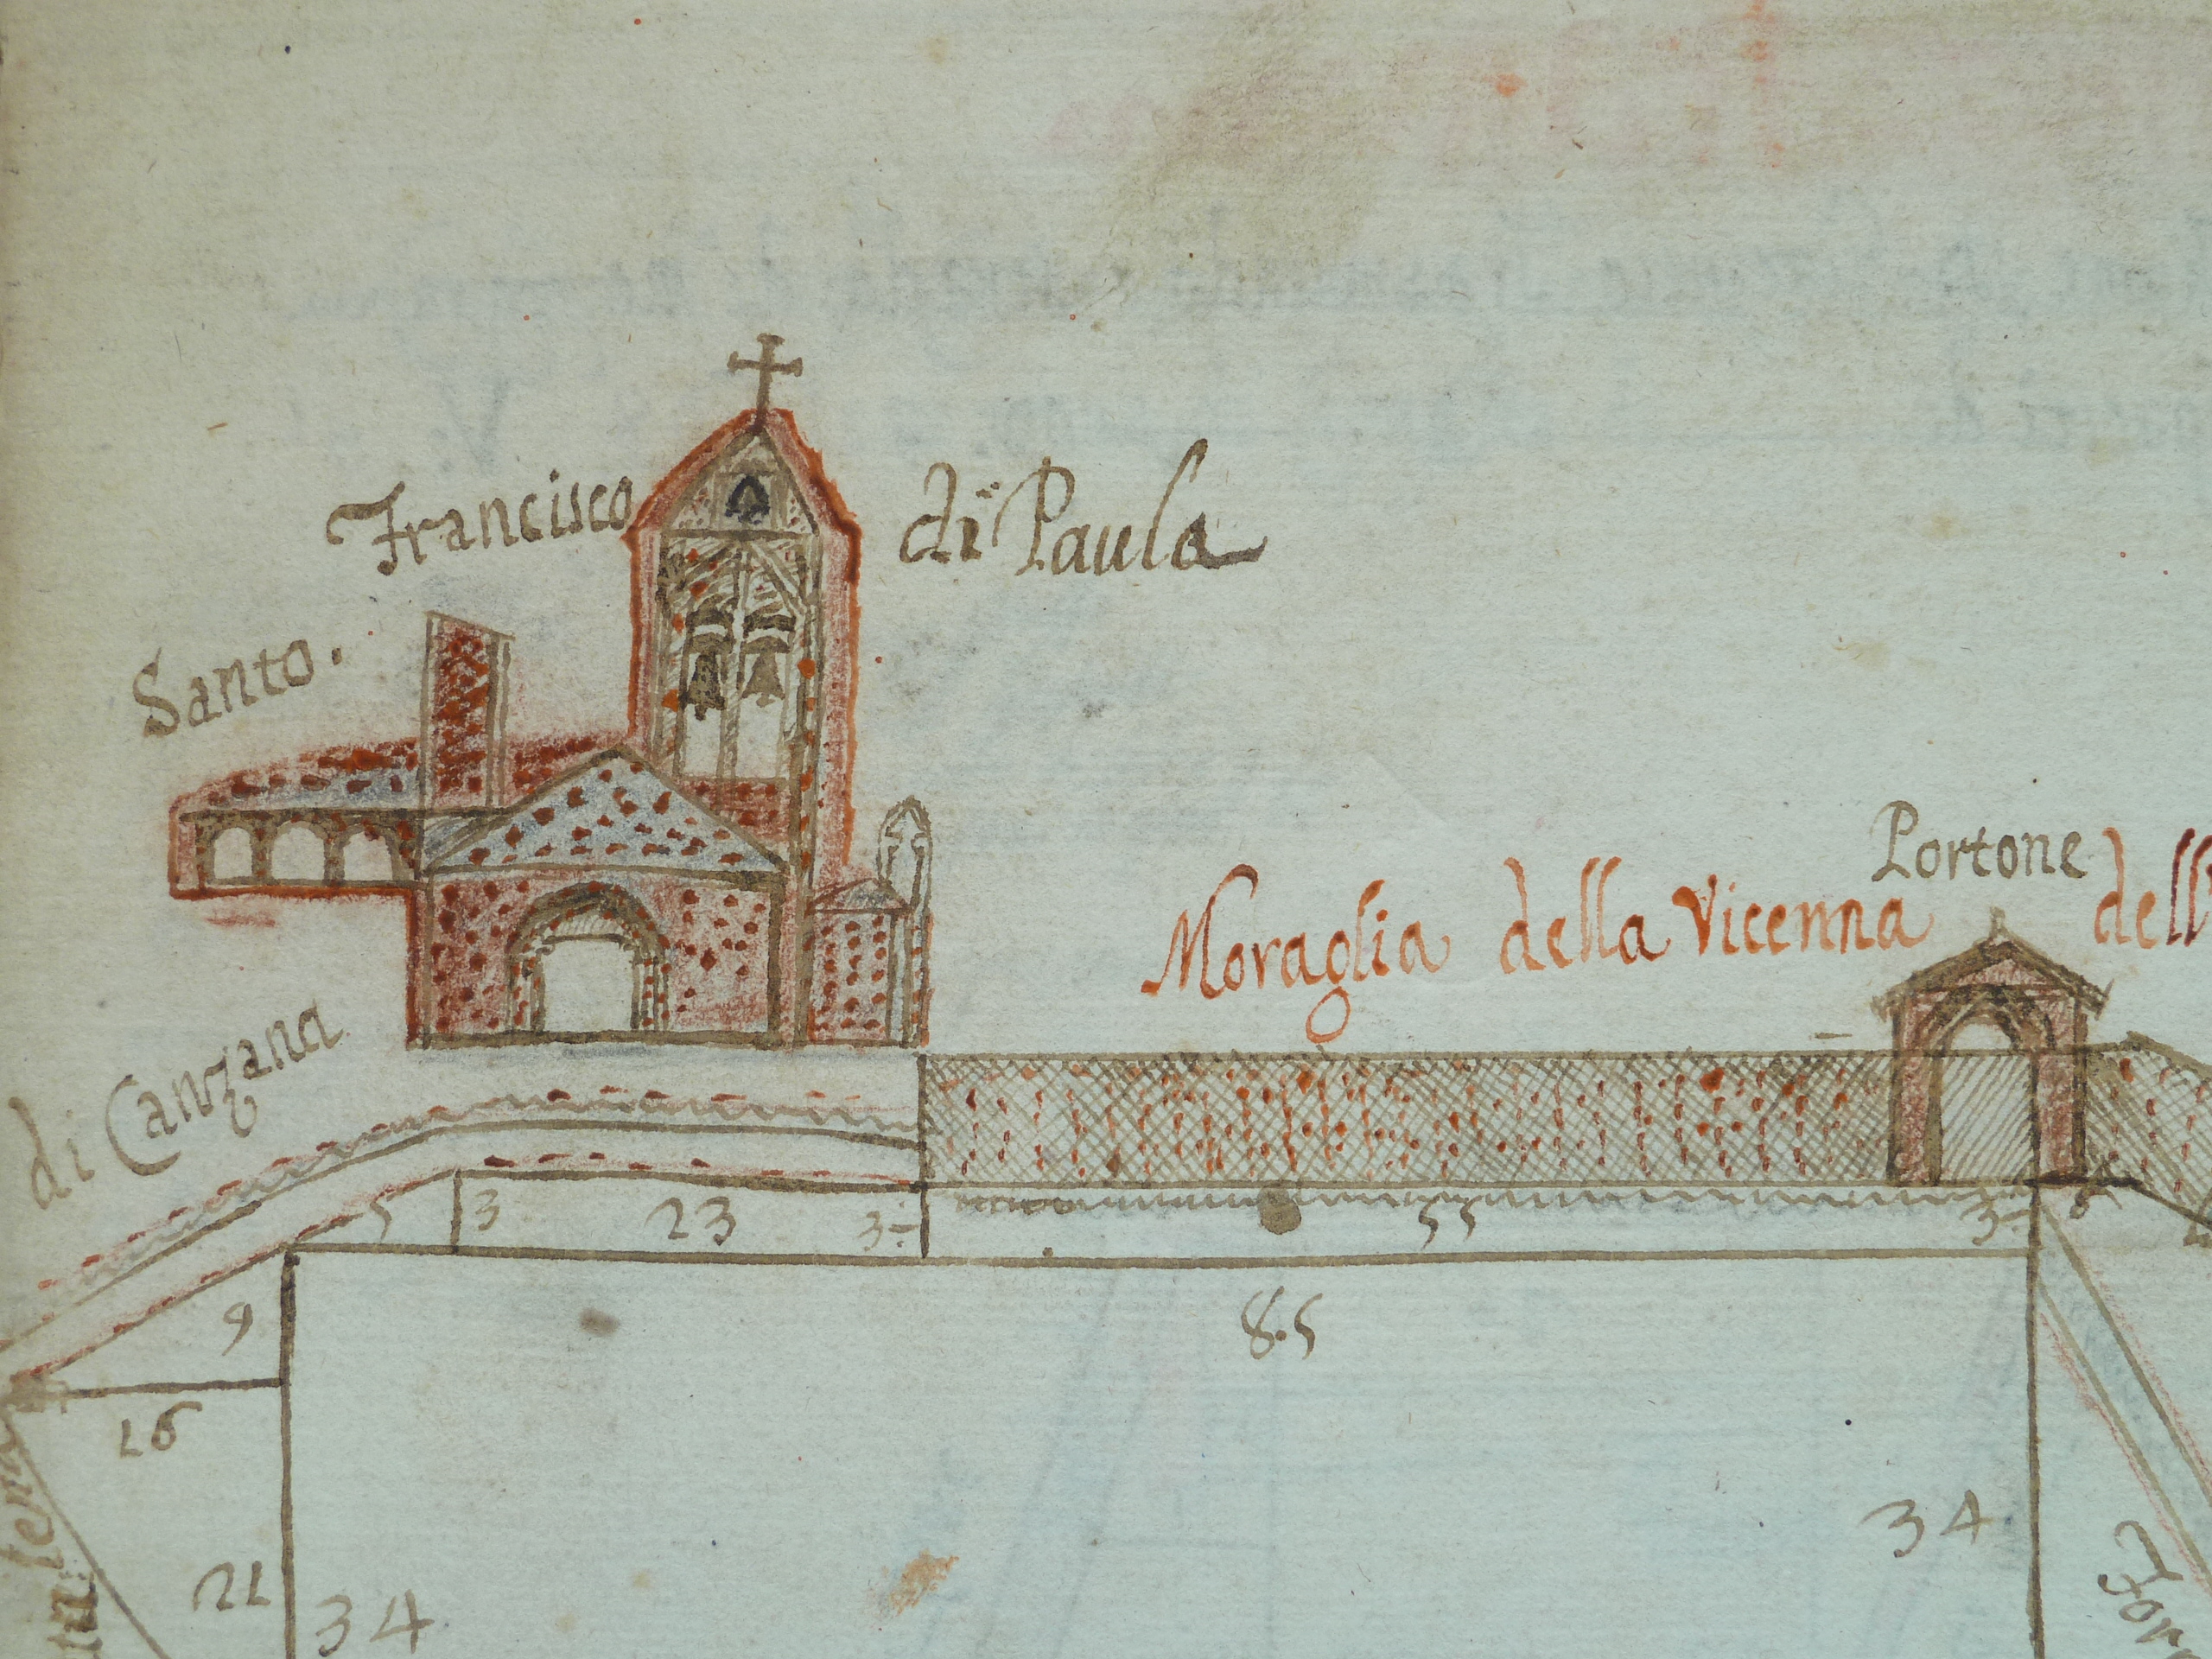 Santo. Francisco di Paula
Portone
Moraglia della Vicenna dell
di Canzana
5 3 23 3 55 3
9
85
16
34
21
34